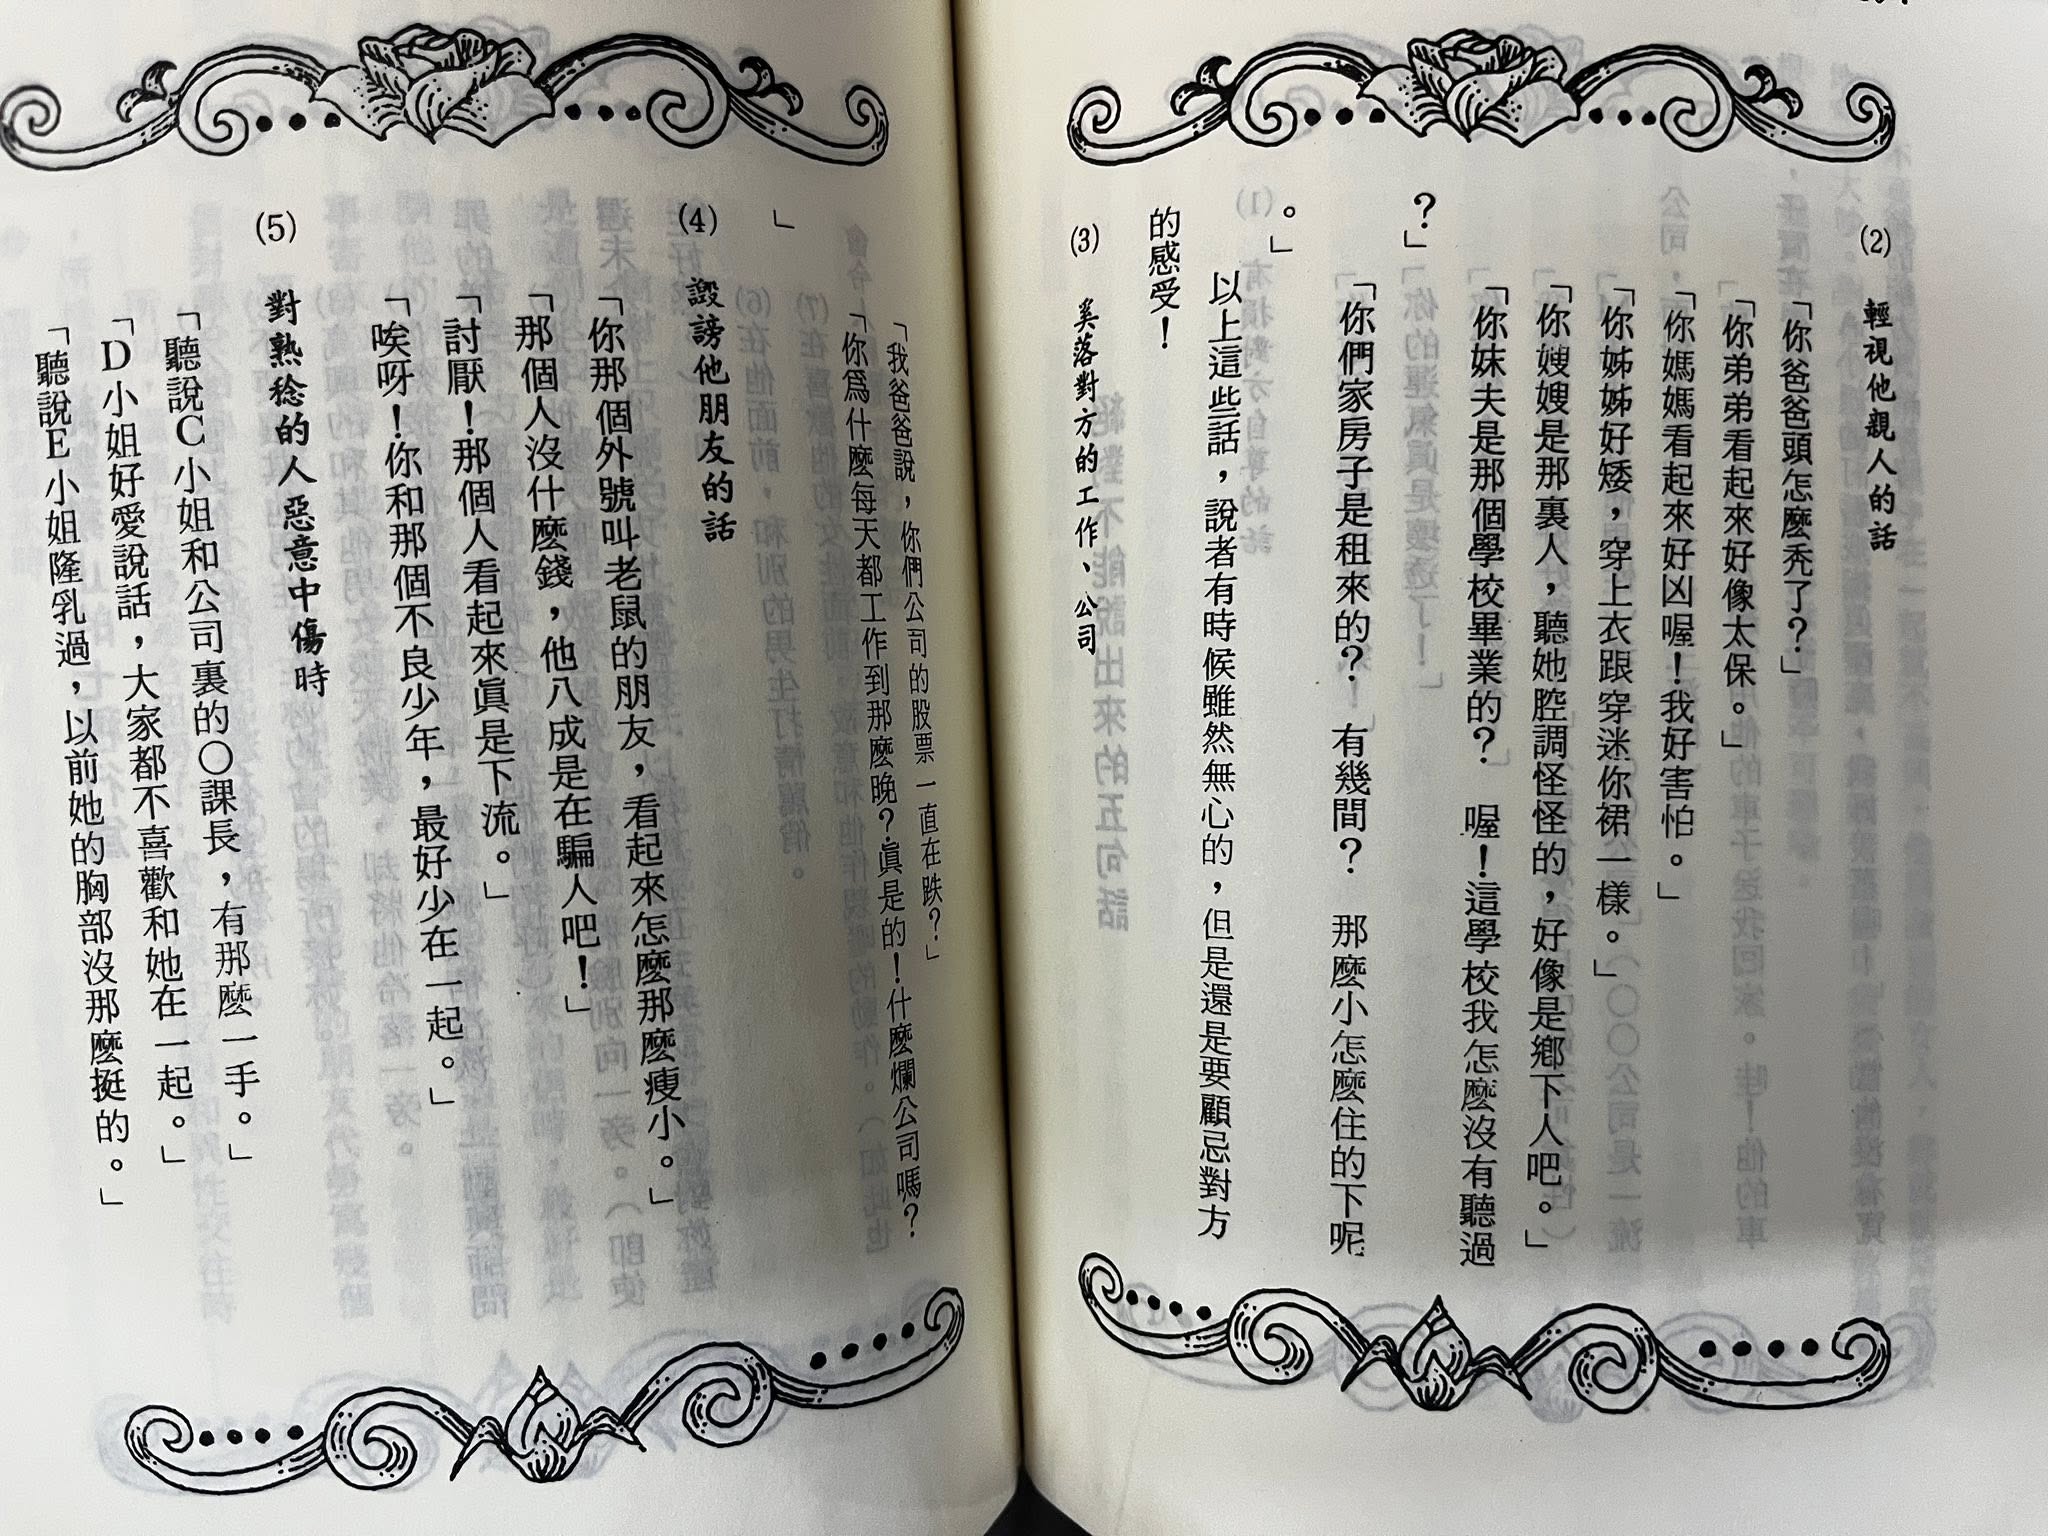 (2) 輕視他親人的話
「你爸爸頭怎麼禿了?」
「你弟弟看起來好像太保。」
「你媽媽看起來好凶喔!我好害怕。」
「你姊姊好矮,穿上衣跟穿迷你裙一樣。」
「你嫂嫂是那裏人,聽她腔調怪怪的,好像是鄉下人吧。」
「你妹夫是那個學校畢業的? 喔!這學校我怎麼沒有聽過
?」
「你們家房子是租來的? 有幾間? 那麼小怎麼住的下呢
。」
以上這些話,說者有時候雖然無心的,但是還是要顧忌對方
的感受!
(3) 奚落對方的工作、公司
「我爸爸說,你們公司的股票一直在跌?」
「你爲什麼每天都工作到那麼晚?眞是的!什麼爛公司嗎?
」
(4) 譭謗他朋友的話
「你那個外號叫老鼠的朋友,看起來怎麼那麼瘦小。」
「那個人沒什麼錢,他八成是在騙人吧!」
「討厭!那個人看起來眞是下流。」
「唉呀!你和那個不良少年,最好少在一起。」
(5) 對熟稔的人惡意中傷時
「聽說C小姐和公司裏的○課長,有那麼一手。」
「D小姐好愛說話,大家都不喜歡和她在一起。」
「聽說E小姐隆乳過,以前她的胸部沒那麼挺的。」